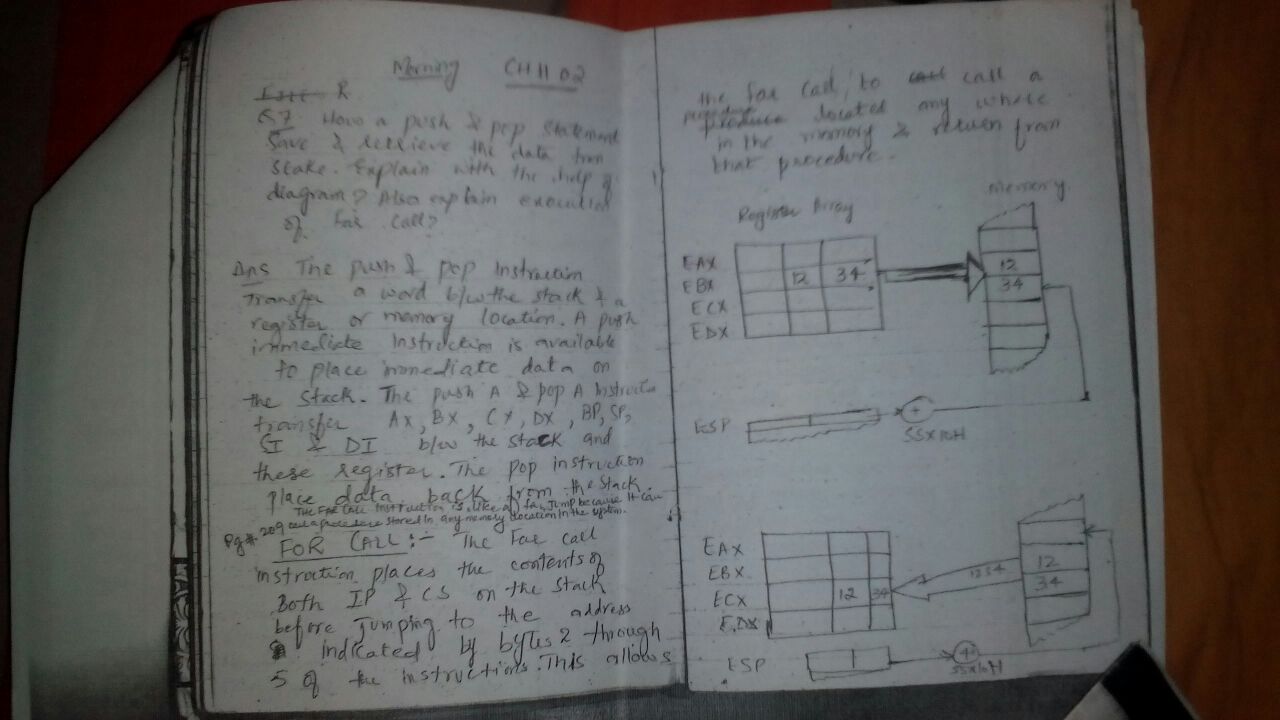 Morning CH 11 02
R
Q7 How a push & pop statement
Save & retrieve the data from
stake. Explain with the help of
diagram? Also explain execution
of Far Call?
Ans The push & pop Instruction
Transfer a word b/w the stack & a
register or memory location. A push
immediate Instruction is available
to place immediate data on
the Stack. The push A & pop A Instruction
transfer AX, BX, CX, DX, BP, SP,
SI & DI b/w the stack and
these register. The pop instruction
place data back from the stack.
The Far Call Instruction is like a far Jump because it can
Pg#. 209 call a procedure stored in any memory location in the system.
FOR CALL :- The Far call
instruction places the contents of
Both IP & CS on the Stack
before Jumping to the address
indicated by bytes 2 through
5 of the instructions. This allows
the far call, to call a
procedure located any where
in the memory & return from
that procedure.
Register Array
memory
EAX
EBX 12 34
ECX
EDX
12
34
ESP
+
SSX10H
EAX
EBX
ECX 12 34
EDX
1234
12
34
ESP
+
SSX10H